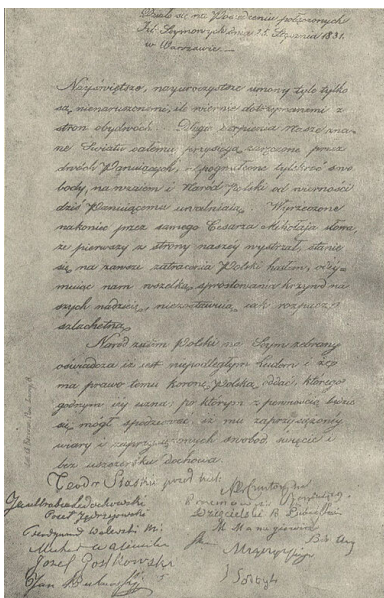 Działo się na Posiedzeniu połączonych
Izb Seymowych dnia 25. Stycznia 1831.
w Warszawie.
Nayświętsze, nayuroczystsze umowy, tyle tylko
są nienaruszonemi, ile wiernie dotrzymanemi z
stron obydwóch. Długie cierpienia nasze zna-
ne Światu całemu, przysięgą zaręczone przez
dwóch Panuiących, a pogwałcone tylekroć swo-
body, nawzaiem i Naród Polski od wierności
dziś Panuiącemu uwalniaią. Wyrzeczone
nakoniec przez samego Cesarza Mikołaja słowa,
że pierwszy z strony naszey wystrzał, stanie
się na zawsze zatracenia Polski hasłem, odey-
muiąc nam wszelką sprostowania krzywd na-
szych nadzieię, niezostawuią iak rozpacz
szlachetną.
Naród zatem Polski na Seym zebrany
oświadcza iż iest niepodległym Ludem i że
ma prawo temu Koronę Polską oddać, którego
godnym iey uzna, po którym z pewnością będzie
się mógł spodziewać, iż mu zaprzysiężoney
wiary i zaprzysiężonych swobod święcie i
bez uszczerbku dochowa.
Ledochowski
Józef
Walewski
Michał
Józef Gostkowski
Jan